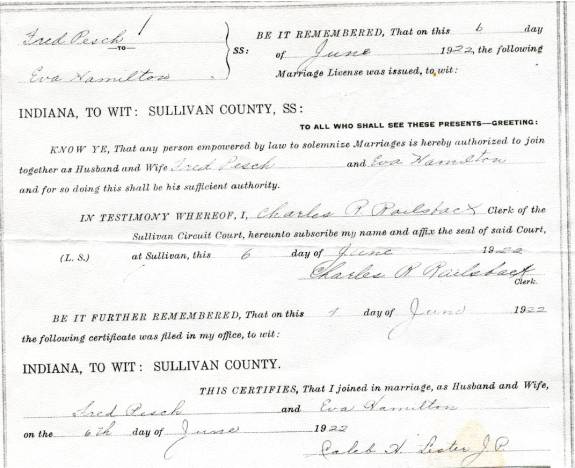 Fred Pesch
BE IT REMEMBERED, That on this 6 day
TO
SS:
of June 1922, the following
Eva Hamilton
Marriage License was issued, to wit:
INDIANA, TO WIT: SULLIVAN COUNTY, SS:
TO ALL WHO SHALL SEE THESE PRESENTS—GREETING:
KNOW YE, That any person empowered by law to solemnize Marriages is hereby authorized to join
together as Husband and Wife Fred Pesch and Eva Hamilton
and for so doing this shall be his sufficient authority.
IN TESTIMONY WHEREOF, I, Charles R Railsback Clerk of the
Sullivan Circuit Court, hereunto subscribe my name and affix the seal of said Court,
(L. S.) at Sullivan, this 6 day of June 1922
Charles R Railsback
Clerk.
BE IT FURTHER REMEMBERED, That on this 7 day of June 1922
the following certificate was filed in my office, to wit:
INDIANA, TO WIT: SULLIVAN COUNTY.
THIS CERTIFIES, That I joined in marriage, as Husband and Wife,
Fred Pesch and Eva Hamilton
on the 6th day of June 1922
Caleb H. Lester J.P.